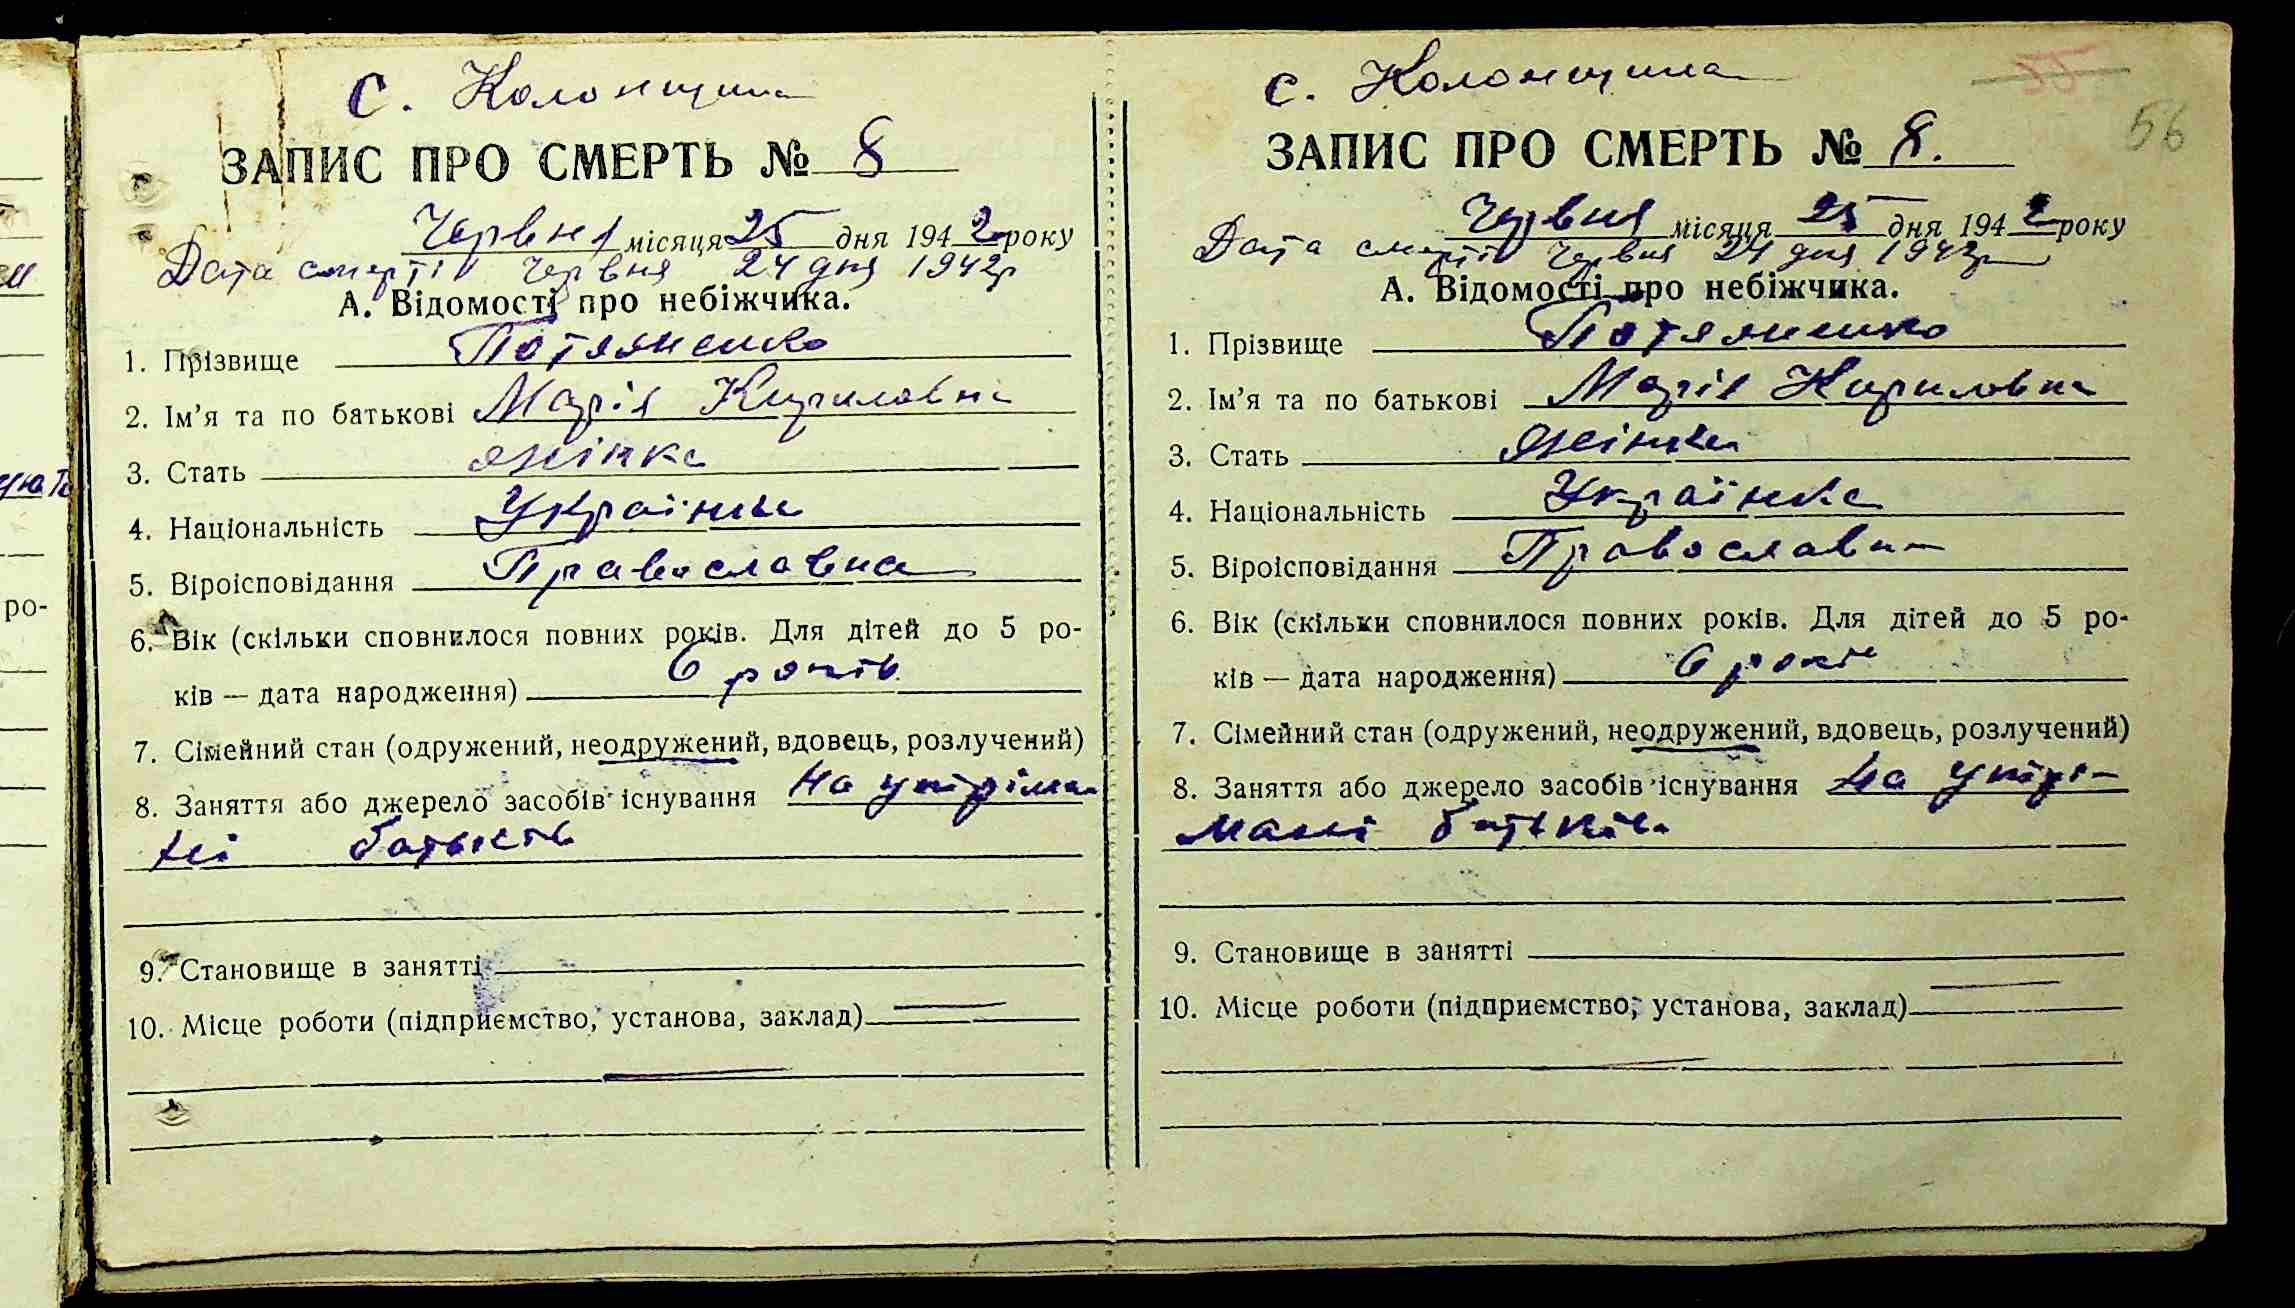 с. Колонщина
ЗАПИС ПРО СМЕРТЬ № 8
Червня місяця 25 дня 1942 року
Дата смерті Червня 24 дня 1942р
А. Відомості про небіжчика.
1. Прізвище
2. Ім'я та по батькові Марія Кириловна
3. Стать жінка
4. Національність Українка
5. Віроісповідання Православна
6. Вік (скільки сповнилося повних років. Для дітей до 5 ро-
ків — дата народження) 6 років
7. Сімейний стан (одружений, неодружений, вдовець, розлучений)
8. Заняття або джерело засобів існування на утріман
ні батьків
9. Становище в занятті
10. Місце роботи (підприємство, установа, заклад)
55
56
с. Колонщина
ЗАПИС ПРО СМЕРТЬ № 8.
Червня місяця 25 дня 1942 року
Дата смерті Червня 24 дня 1942р
А. Відомості про небіжчика.
1. Прізвище
2. Ім'я та по батькові Марія Кириловна
3. Стать жінка
4. Національність Українка
5. Віроісповідання Православна
6. Вік (скільки сповнилося повних років. Для дітей до 5 ро-
ків — дата народження) 6 років
7. Сімейний стан (одружений, неодружений, вдовець, розлучений)
8. Заняття або джерело засобів існування на утрі-
мані батьків
9. Становище в занятті
10. Місце роботи (підприємство, установа, заклад)
ро-